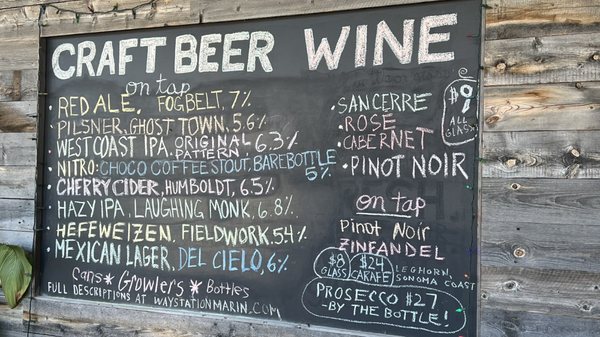 CRAFT BEER
on tap
RED ALE, FOGBELT, 7%
PILSNER, GHOST TOWN, 5.6%
WEST COAST IPA, ORIGINAL PATTERN, 6.3%
NITRO: CHOCO COFFEE STOUT, BAREBOTTLE 5%
CHERRY CIDER, HUMBOLDT, 6.5%
HAZY IPA, LAUGHING MONK, 6.8%
HEFEWEIZEN, FIELDWORK, 5.4%
MEXICAN LAGER, DEL CIELO, 6%
Cans * Growlers * Bottles
FULL DESCRIPTIONS AT WAYSTATIONMARIN.COM
WINE
$9
ALL
GLASS
• SANCERRE
• ROSE
• CABERNET
• PINOT NOIR
on tap
PINOT NOIR
ZINFANDEL
$8 GLASS
$24 CARAFE
LEGHORN,
SONOMA COAST
PROSECCO $27
-BY THE BOTTLE!